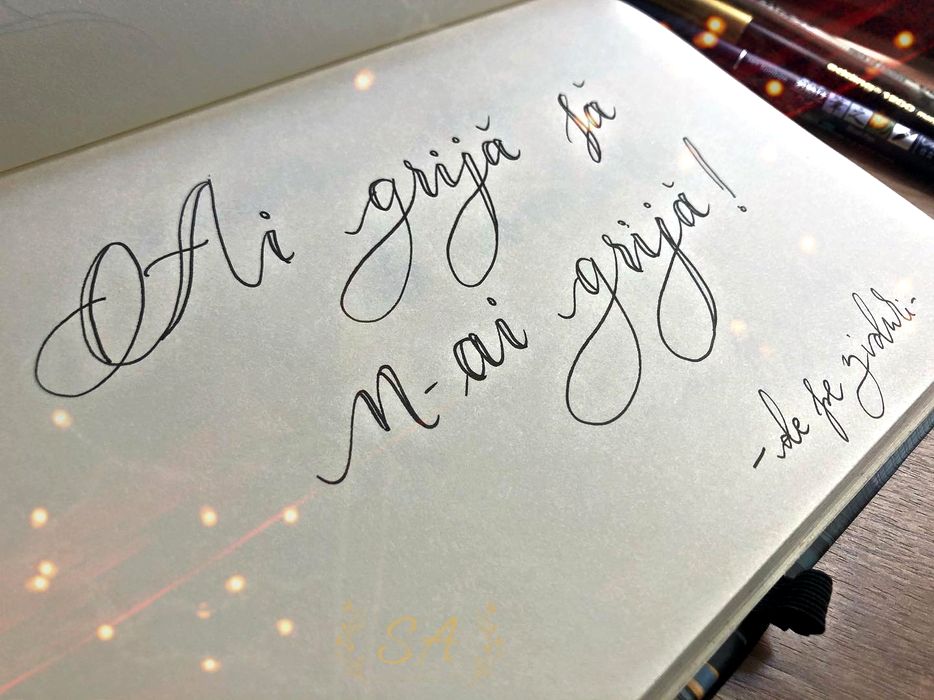 Ai grijă să
n-ai grijă!
-de pe ziduri-
edding 1200
SA